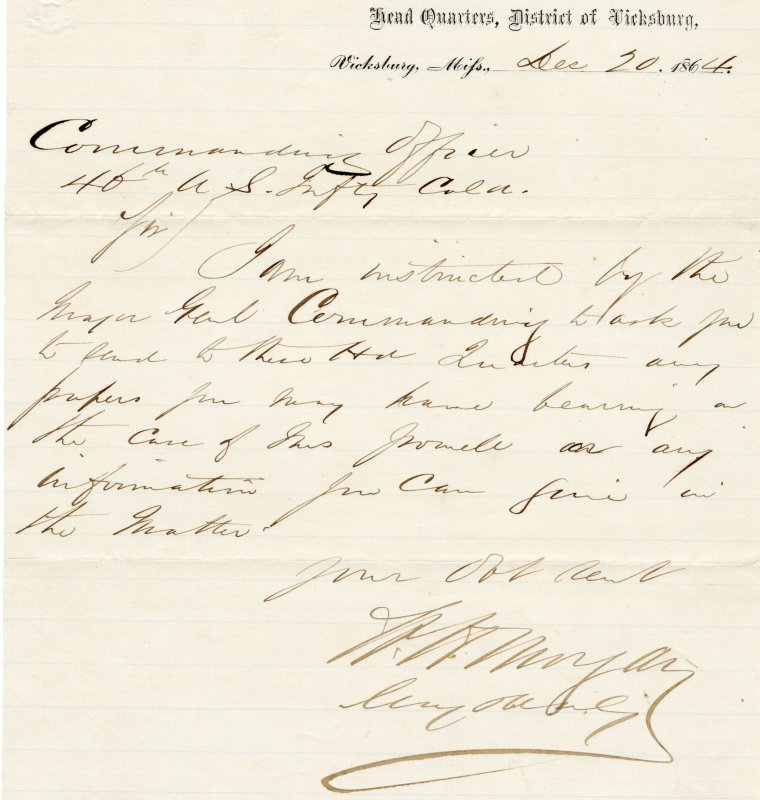 Head Quarters, District of Vicksburg,
Vicksburg, Miss., Dec 20, 1864.
Commanding Officer
46th U S. Infty Cold.
Sir
I am instructed by the
Major Genl Commanding to ask you
to send to these Hd Quarters any
papers you may have bearing on
the case of Mrs Powell or any
information you can give in
the Matter.
Your Obt Servt
Morgan